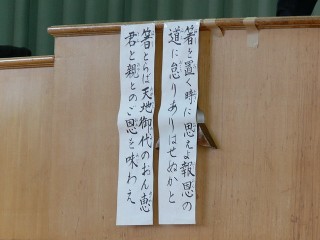 箸を置く時に思えよ報恩の
道に怠りありはせぬかと
箸とらば天地御代のおん恵
君と親とのご恩を味わえ